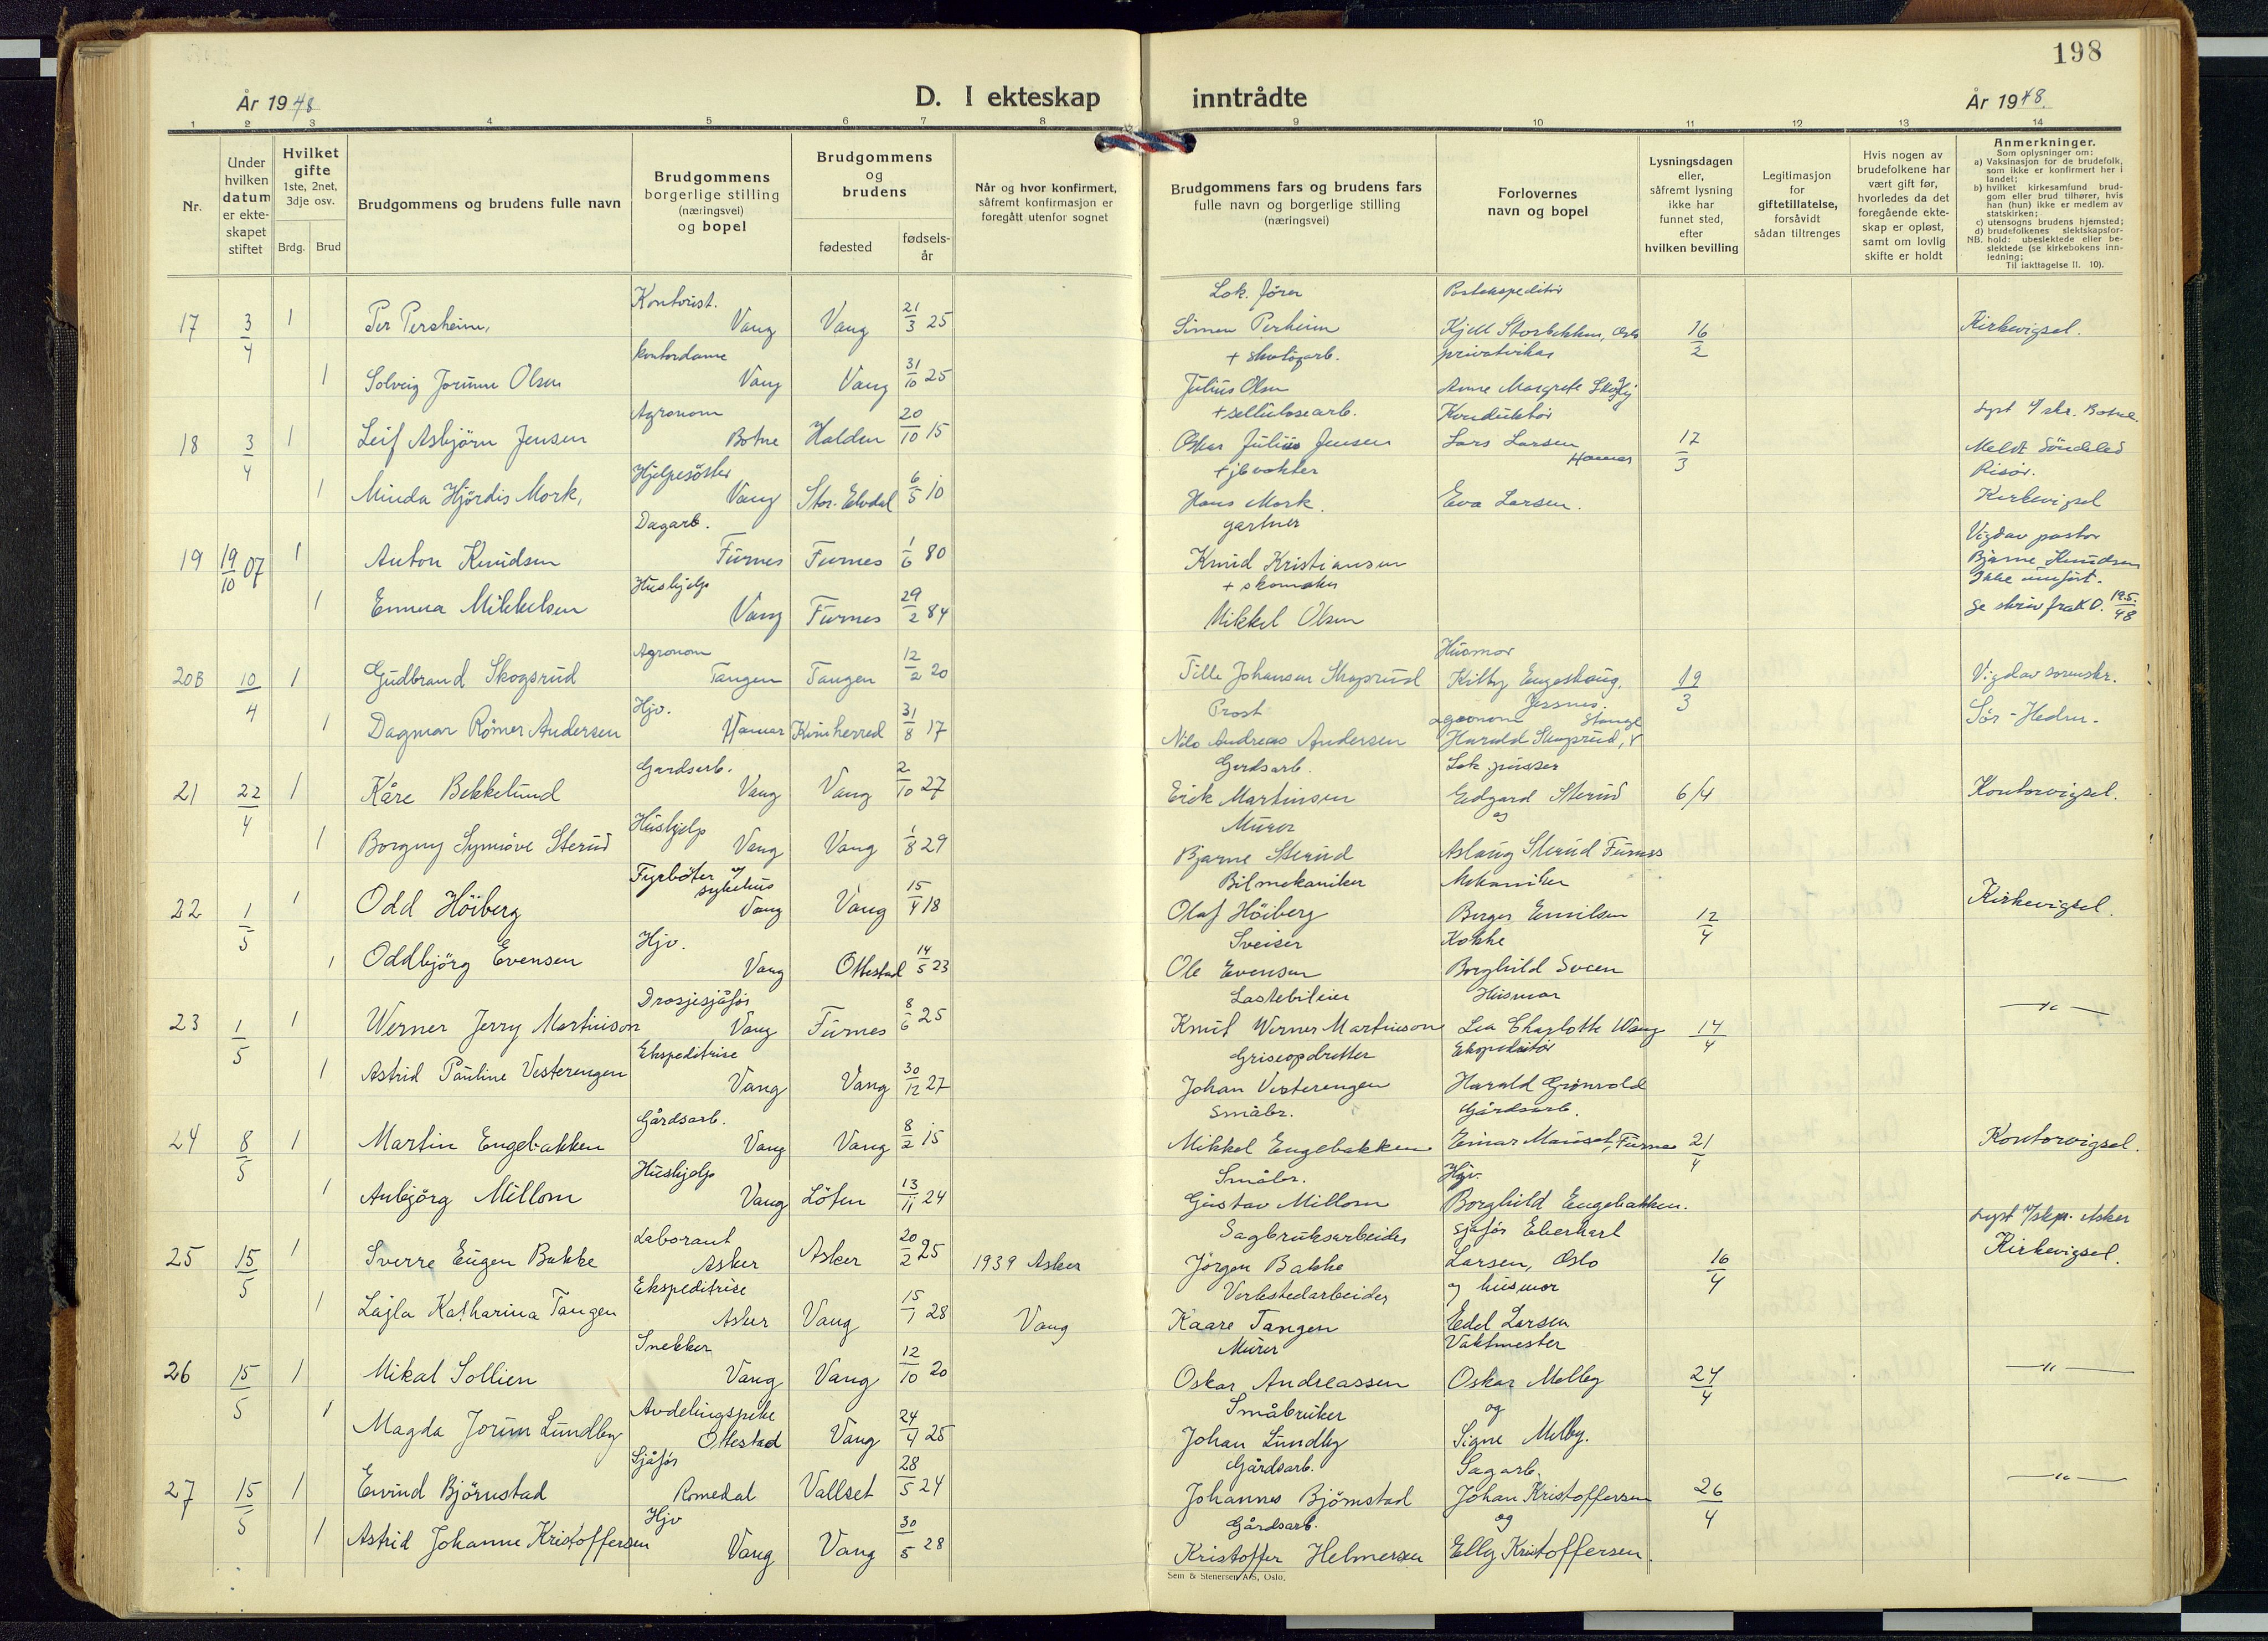 198
År 1948
D. I ekteskap inntrådte
År 1948.
1 2 3 4 5 6 7 8 9 10 11 12 13 14
Nr.
Under hvilken datum er ekteskapet stiftet
Hvilket gifte 1ste, 2net, 3dje osv.
Brdg. Brud
Brudgommens og brudens fulle navn
Brudgommens borgerlige stilling (næringsvei) og bopel
Brudgommens og brudens
fødested
fødselsår
Når og hvor konfirmert, såfremt konfirmasjon er foregått utenfor sognet
Brudgommens fars og brudens fars fulle navn og borgerlige stilling (næringsvei)
Forlovernes navn og bopel
Lysningsdagen eller, såfremt lysning ikke har funnet sted, efter hvilken bevilling
Legitimasjon for giftetillatelse, forsåvidt sådan tiltrenges
Hvis nogen av brudefolkene har vært gift før, hvorledes da det foregående ekteskap er opløst, samt om lovlig skifte er holdt
Anmerkninger.
Som oplysninger om:
a) Vaksinasjon for de brudefolk, som ikke er konfirmert her i landet;
b) hvilket kirkesamfund brudgom eller brud tilhører, hvis han (hun) ikke er medlem av statskirken;
c) utensogns brudens hjemsted;
d) brudefolkenes slektskapsforhold: ubeslektede eller beslektede (se kirkebokens innledning;
NB. Til iakttagelse II. 10).
Kontorist. Lok. fører Postekspeditør
17 3/4 1 Per Persheim, Vang Vang 21/3 25 Simen Perheim Kjell Storbekken, Oslo 16/2 Kirkevigsel.
kontordame + skotøyarb. privatvikar
1 Solveig Jorunn Olsen Vang Vang 31/10 25 Julius Olsen Anne Margrete Skoglj
Agronom + sellulosearb. Konduktør Lyst i skr. Botne.
18 3/4 1 Leif Asbjørn Jensen Botne Halden 20/10 15 Oskar Julius Jensen Lars Larsen Hamar 17/3 Meldt Søndeled
Hjelpesøster + jb vokter Risør.
1 Minda Hjørdis Mork, Vang Stor-Elvdal 6/5 10 Hans Mork. Eva Larsen. Kirkevigsel
Dagarb. gartner Vigd av pastor
19 19/10 07 1 Anton Knudsen Furnes Furnes 1/6 80 Knud Kristiansen Bjarne Knudsen
Hushjelp + skomaker Ikke innført.
1 Emma Mikkelsen Vang Furnes 29/2 84 Mikkel Olsen Se skriv fra K.D. 19.5./48
Agronom Husmor
20B 10/4 1 Gudbrand Skogsrud Tangen Tangen 12/2 20 Tille Johansen Skogsrud Kitty Engeshaug, Jessnes. 19/3 Vigd av sorenskr.
Hjv. Prost agronom Stange Sør-Hedm.
1 Dagmar Rømer Andersen Hamar Kvinherred 31/8 17 Nils Andreas Andersen Harald Skogsrud,
Gardsarb. Gardsarb. Lok. pusser
21 22/4 1 Kåre Bekkelund Vang Vang 2/10 27 Erik Martinsen Edgard Sterud 6/4 Kontorvigsel.
Hushjelp Murer og
1 Borgny Synnøve Sterud Vang Vang 1/8 29 Bjarne Sterud Aslaug Sterud Furnes
Fyrbøter v/ sykehus Bilmekaniker Mekaniker
22 1/5 1 Odd Høiberg Vang Vang 15/4 18 Olaf Høiberg Birger Emilsen 12/4 Kirkevigsel.
Hjv. Sveiser Kokke
1 Oddbjørg Evensen Vang Ottestad 14/5 23 Ole Evensen Borghild Sveen
Drosjesjåfør Lastebileier Husmor
23 1/5 1 Werner Jerry Martinson Vang Furnes 8/6 25 Knut Werner Martinson Lea Charlotte Wang 14/4 —"—
Ekspeditrise Griseopdretter Ekspeditør
1 Astrid Pauline Vesterengen Vang Vang 30/12 27 Johan Vesterengen Harald Grønvold
Gårdsarb. Småbr. Gårdsarb.
24 8/5 1 Martin Engebakken Vang Vang 8/2 15 Mikkel Engebakken Einar Mauset, Furnes 21/4 Kontorvigsel.
Hushjelp Småbr. Hjv.
1 Anbjørg Millom Vang Løten 13/11 24 Gustav Millom Borghild Engebakken.
Laborant Sagbruksarbeider sjåfør Eberhart Lyst i/skp. Asker
25 15/5 1 Sverre Eugen Bakke Asker Asker 20/2 25 1939 Asker Jørgen Bakke Larsen, Oslo 16/4 Kirkevigsel.
Ekspeditrise Verkstedarbeider og husmor
1 Lajla Katharina Tangen Asker Vang 15/1 28 Vang Kaare Tangen Edel Larsen
Snekker Murer Vaktmester
26 15/5 1 Mikal Sollien Vang Vang 12/10 20 Oskar Andreassen Oskar Melby 24/4 —"—
Avdelingspike Småbruker og
1 Magda Jorun Lundby Ottestad Vang 24/4 25 Johan Lundby Signe Melby.
Sjåfør Gårdsarb. Sagarb.
27 15/5 1 Eivind Bjørnstad Romedal Vallset 28/5 24 Johannes Bjørnstad Johan Kristoffersen 26/4 —"—
Hjv Gårdsarb. og
1 Astrid Johanne Kristoffersen Vang Vang 30/5 28 Kristoffer Helmersen Elly Kristoffersen.
Sem & Stenersen A/S, Oslo.